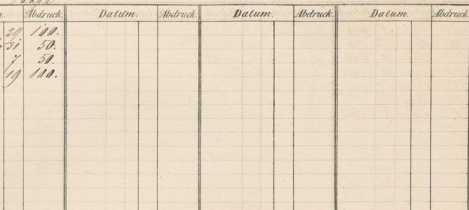 Abdruck. Datum. Abdruck. Datum. Abdruck. Datum. Abdruck.
20 100.
31 50.
7 50.
19 100.